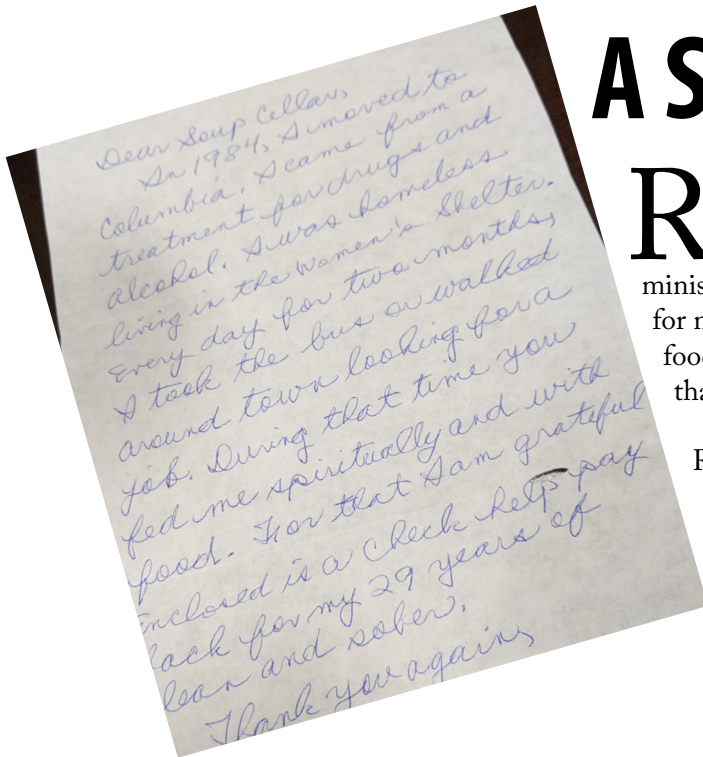 Dear Soup Cellar,
In 1984, I moved to
Columbia. I came from a
treatment for drugs and
alcohol. I was homeless
living in the Women's Shelter.
Every day for two months,
I took the bus or walked
around town looking for a
job. During that time you
fed me spiritually and with
food. For that I am grateful
Enclosed is a check help pay
back for my 29 years of
clean and sober.
Thank you again,
A S
R
minis
for
food
tha
R